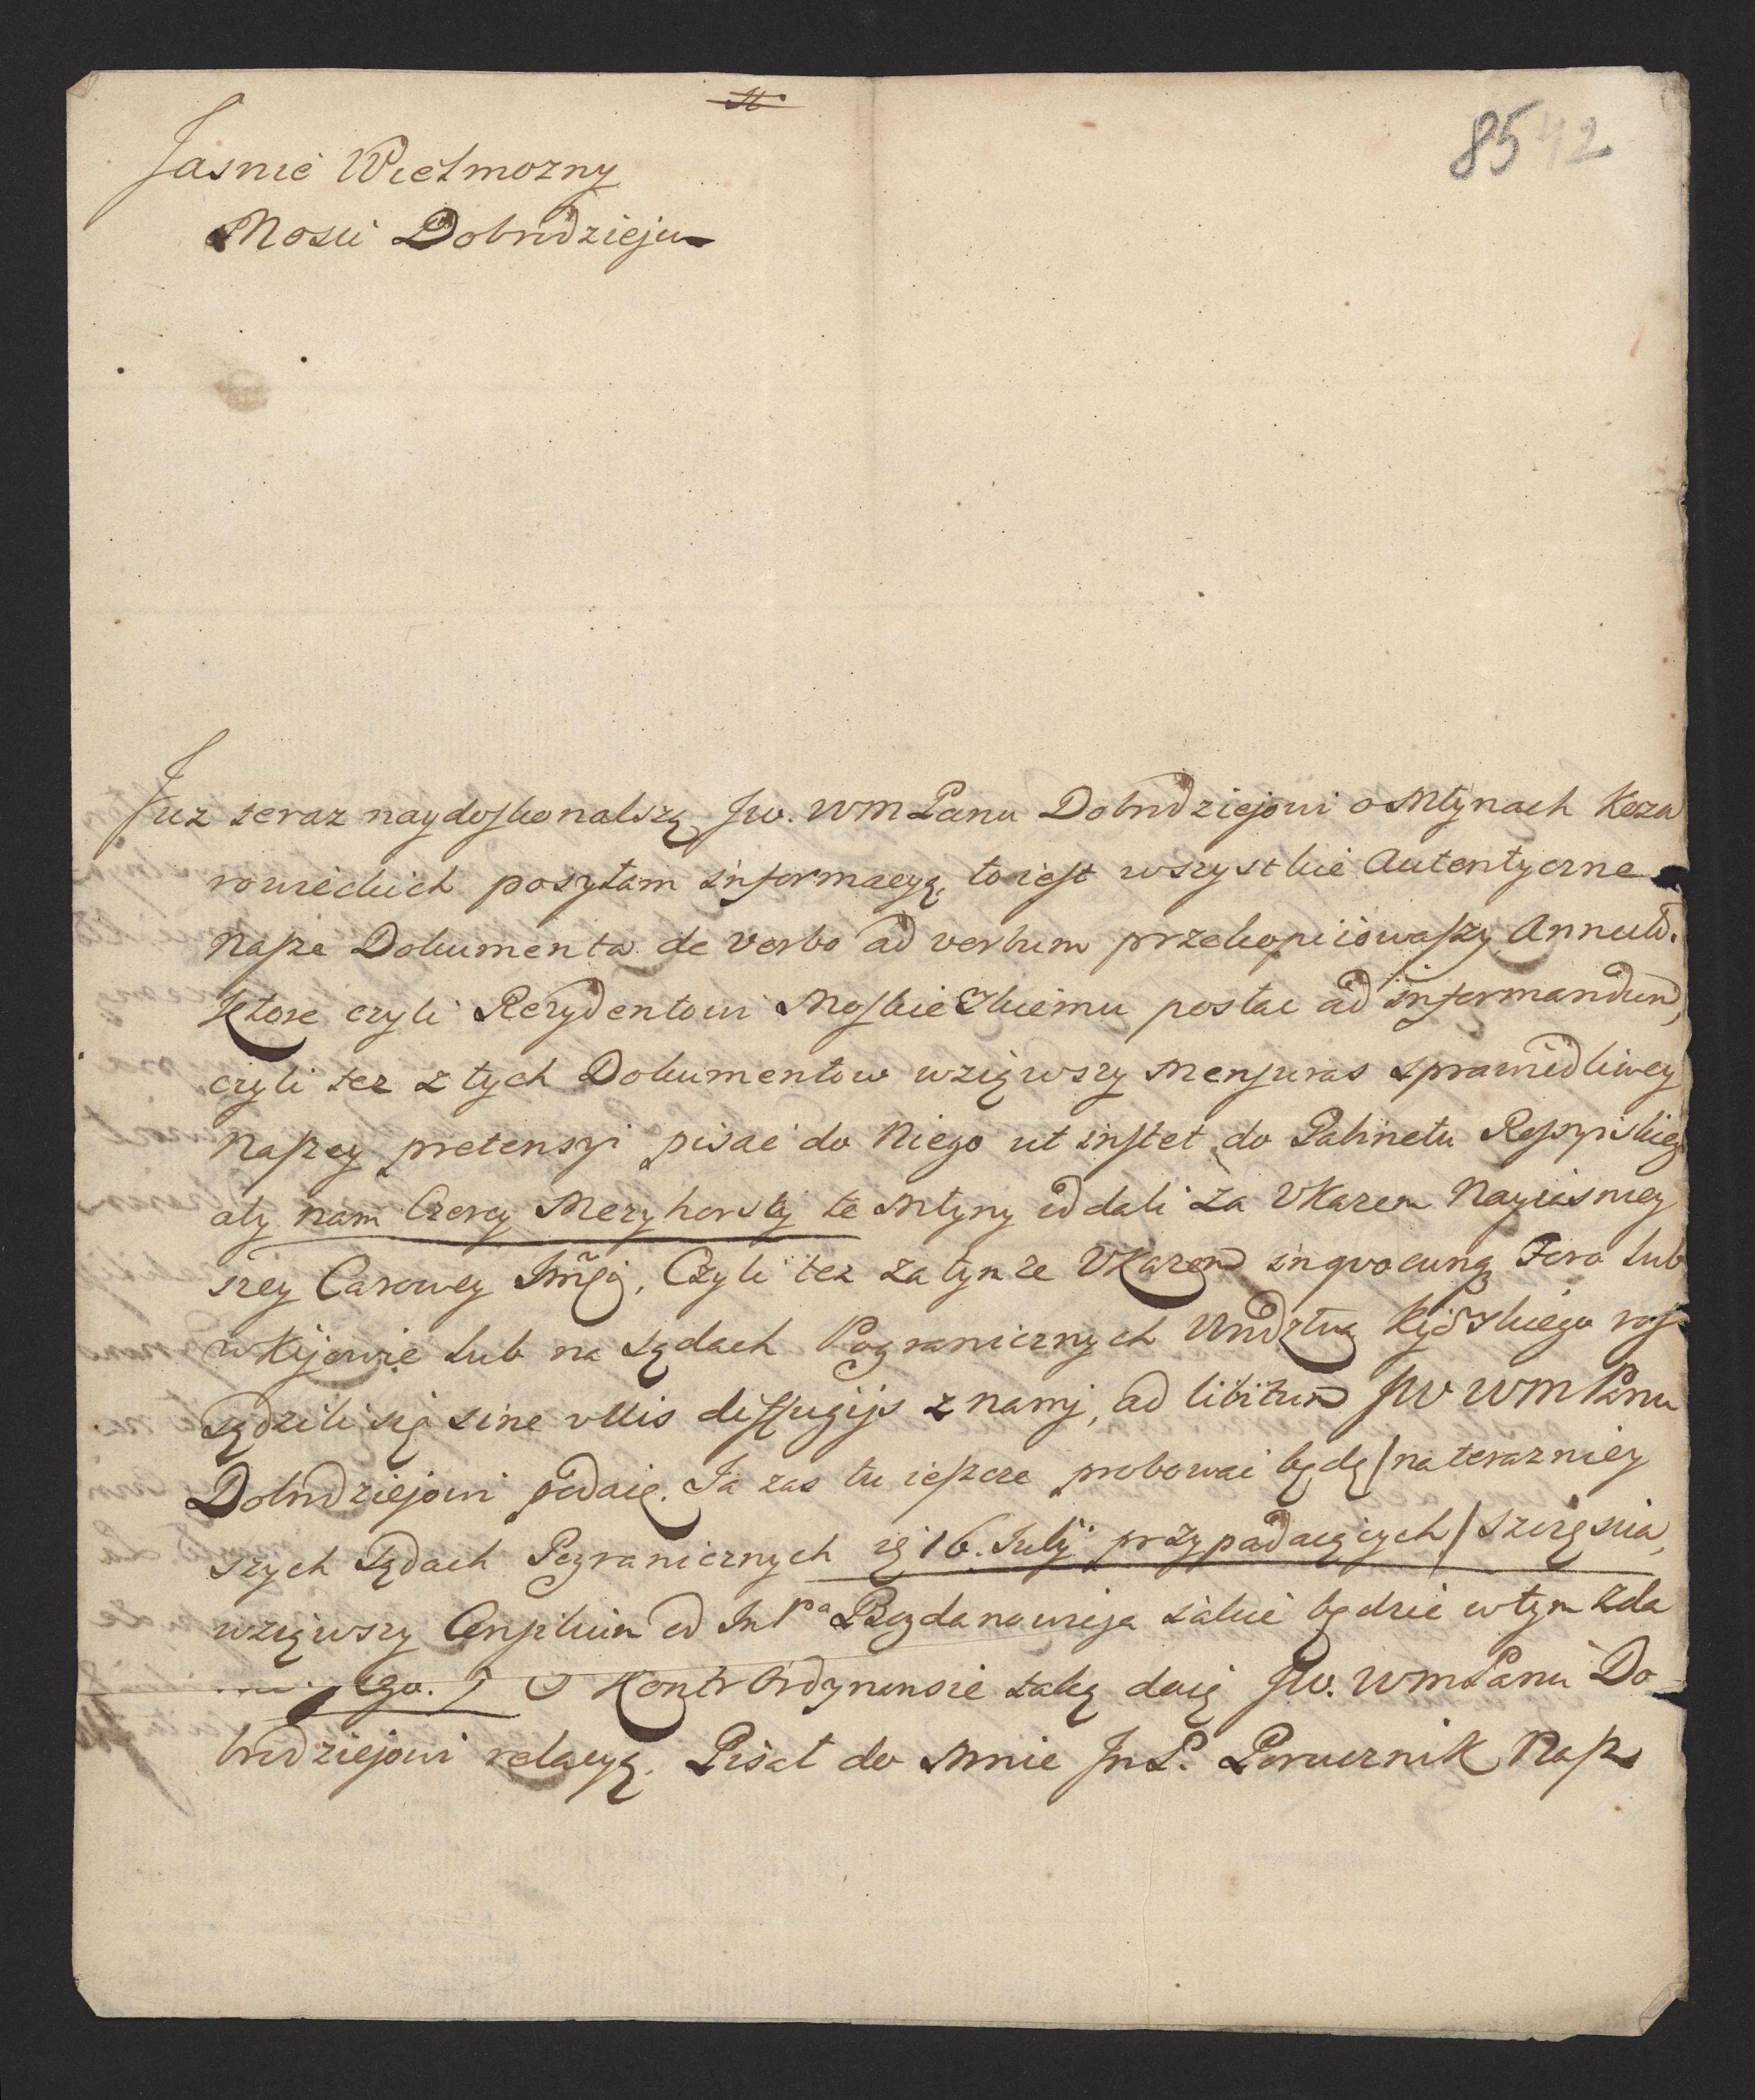 8542
Jasnie Wielmozny
Mosci Dobrodzieju
Juz teraz naydoskonalszą Jw. WM Panu Dobrodziejowi o Młynach Koza
rowickich posyłam informacyą, to iest wszystkie Autentyczne
nasze Dokumenta de verbo ad verbum przekopiiowaszy
Ktore czyli Rezydentowi Moskiewskiemu posłac ad informandum,
czyli tez z tych Dokumentow wziąwszy mensuras sprawiedliwey
naszey pretensyi pisac do Niego ut instet do Gabinetu Rossyiskieg
aby nam Czercy Mezyhorscy te Młyny oddali za Ukazem Nayiasniey
szey Carowey Imści, Czyli tez za tymze Ukazem in qvocunq Foro lub
w Kijowie lub na Sądach Pogranicznych Wndztwa Kijowskiego roz
sądzili się sine ullis diffugijs z namj, ad libitum JW WM Panu
Dobrodziejowi podaię. Ja zas tu ieszcze probowac będę / na terazniey
szych Sądach Pogranicznych 16. Julij przypadaiących / szczęscia,
wziąwszy od Im Pa Bogdanowicza iakie będzie w tym zda
O Kontr Ordynansie taką daię Jw. WM Panu Do
brodziejowi relacyą. Pisał do Mnie Jm P. Porucznik Nasz